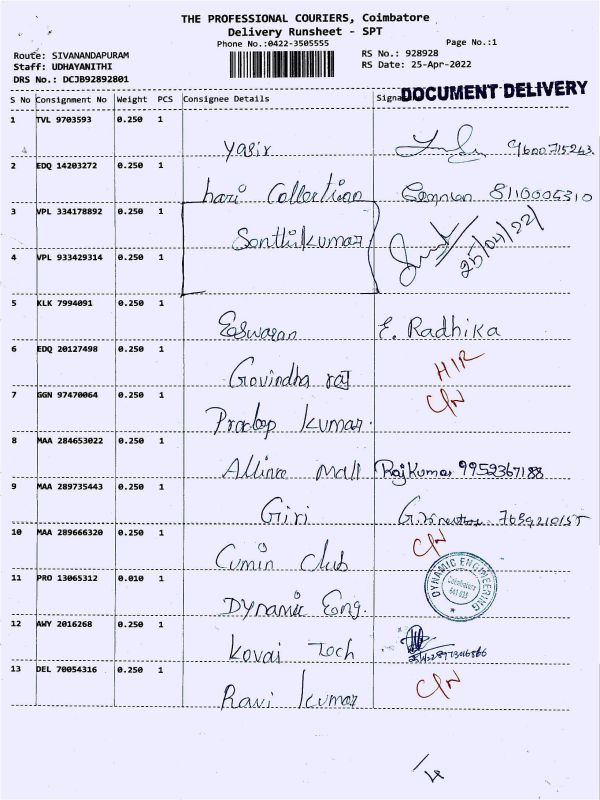 THE PROFESSIONAL COURIERS, Coimbatore
Delivery Runsheet - SPT
Phone No.:0422-3505555
Page No.:1
Route: SIVANANDAPURAM
Staff: UDHAYANITHI
DRS No.: DCJB92892801
RS No.: 928928
RS Date: 25-Apr-2022
DOCUMENT DELIVERY
S No Consignment No Weight PCS Consignee Details
1 TVL 9703593 0.250 1 Yasir 9600715243
2 EDQ 14203272 0.250 1 hari Collection 8110005310
3 VPL 334178892 0.250 1 Senthilkumar 25/04/22
4 VPL 933429314 0.250 1
5 KLK 7994091 0.250 1 Easwaran E. Radhika
6 EDQ 20127498 0.250 1 Govindha raj HIR
7 GGN 97470064 0.250 1 Pradeep Kumar. C/N
8 MAA 284653022 0.250 1 Allince Mall Rajkumar 9959367188
9 MAA 289735443 0.250 1 Giri
10 MAA 289666320 0.250 1 Cumin Club C/N
11 PRO 13065312 0.010 1 Dynamic Eong. DYNAMIC ENGINEERING Coimbatore
12 AWY 2016268 0.250 1 Kovai Tech
13 DEL 70054316 0.250 1 Ravi Kumar C/N